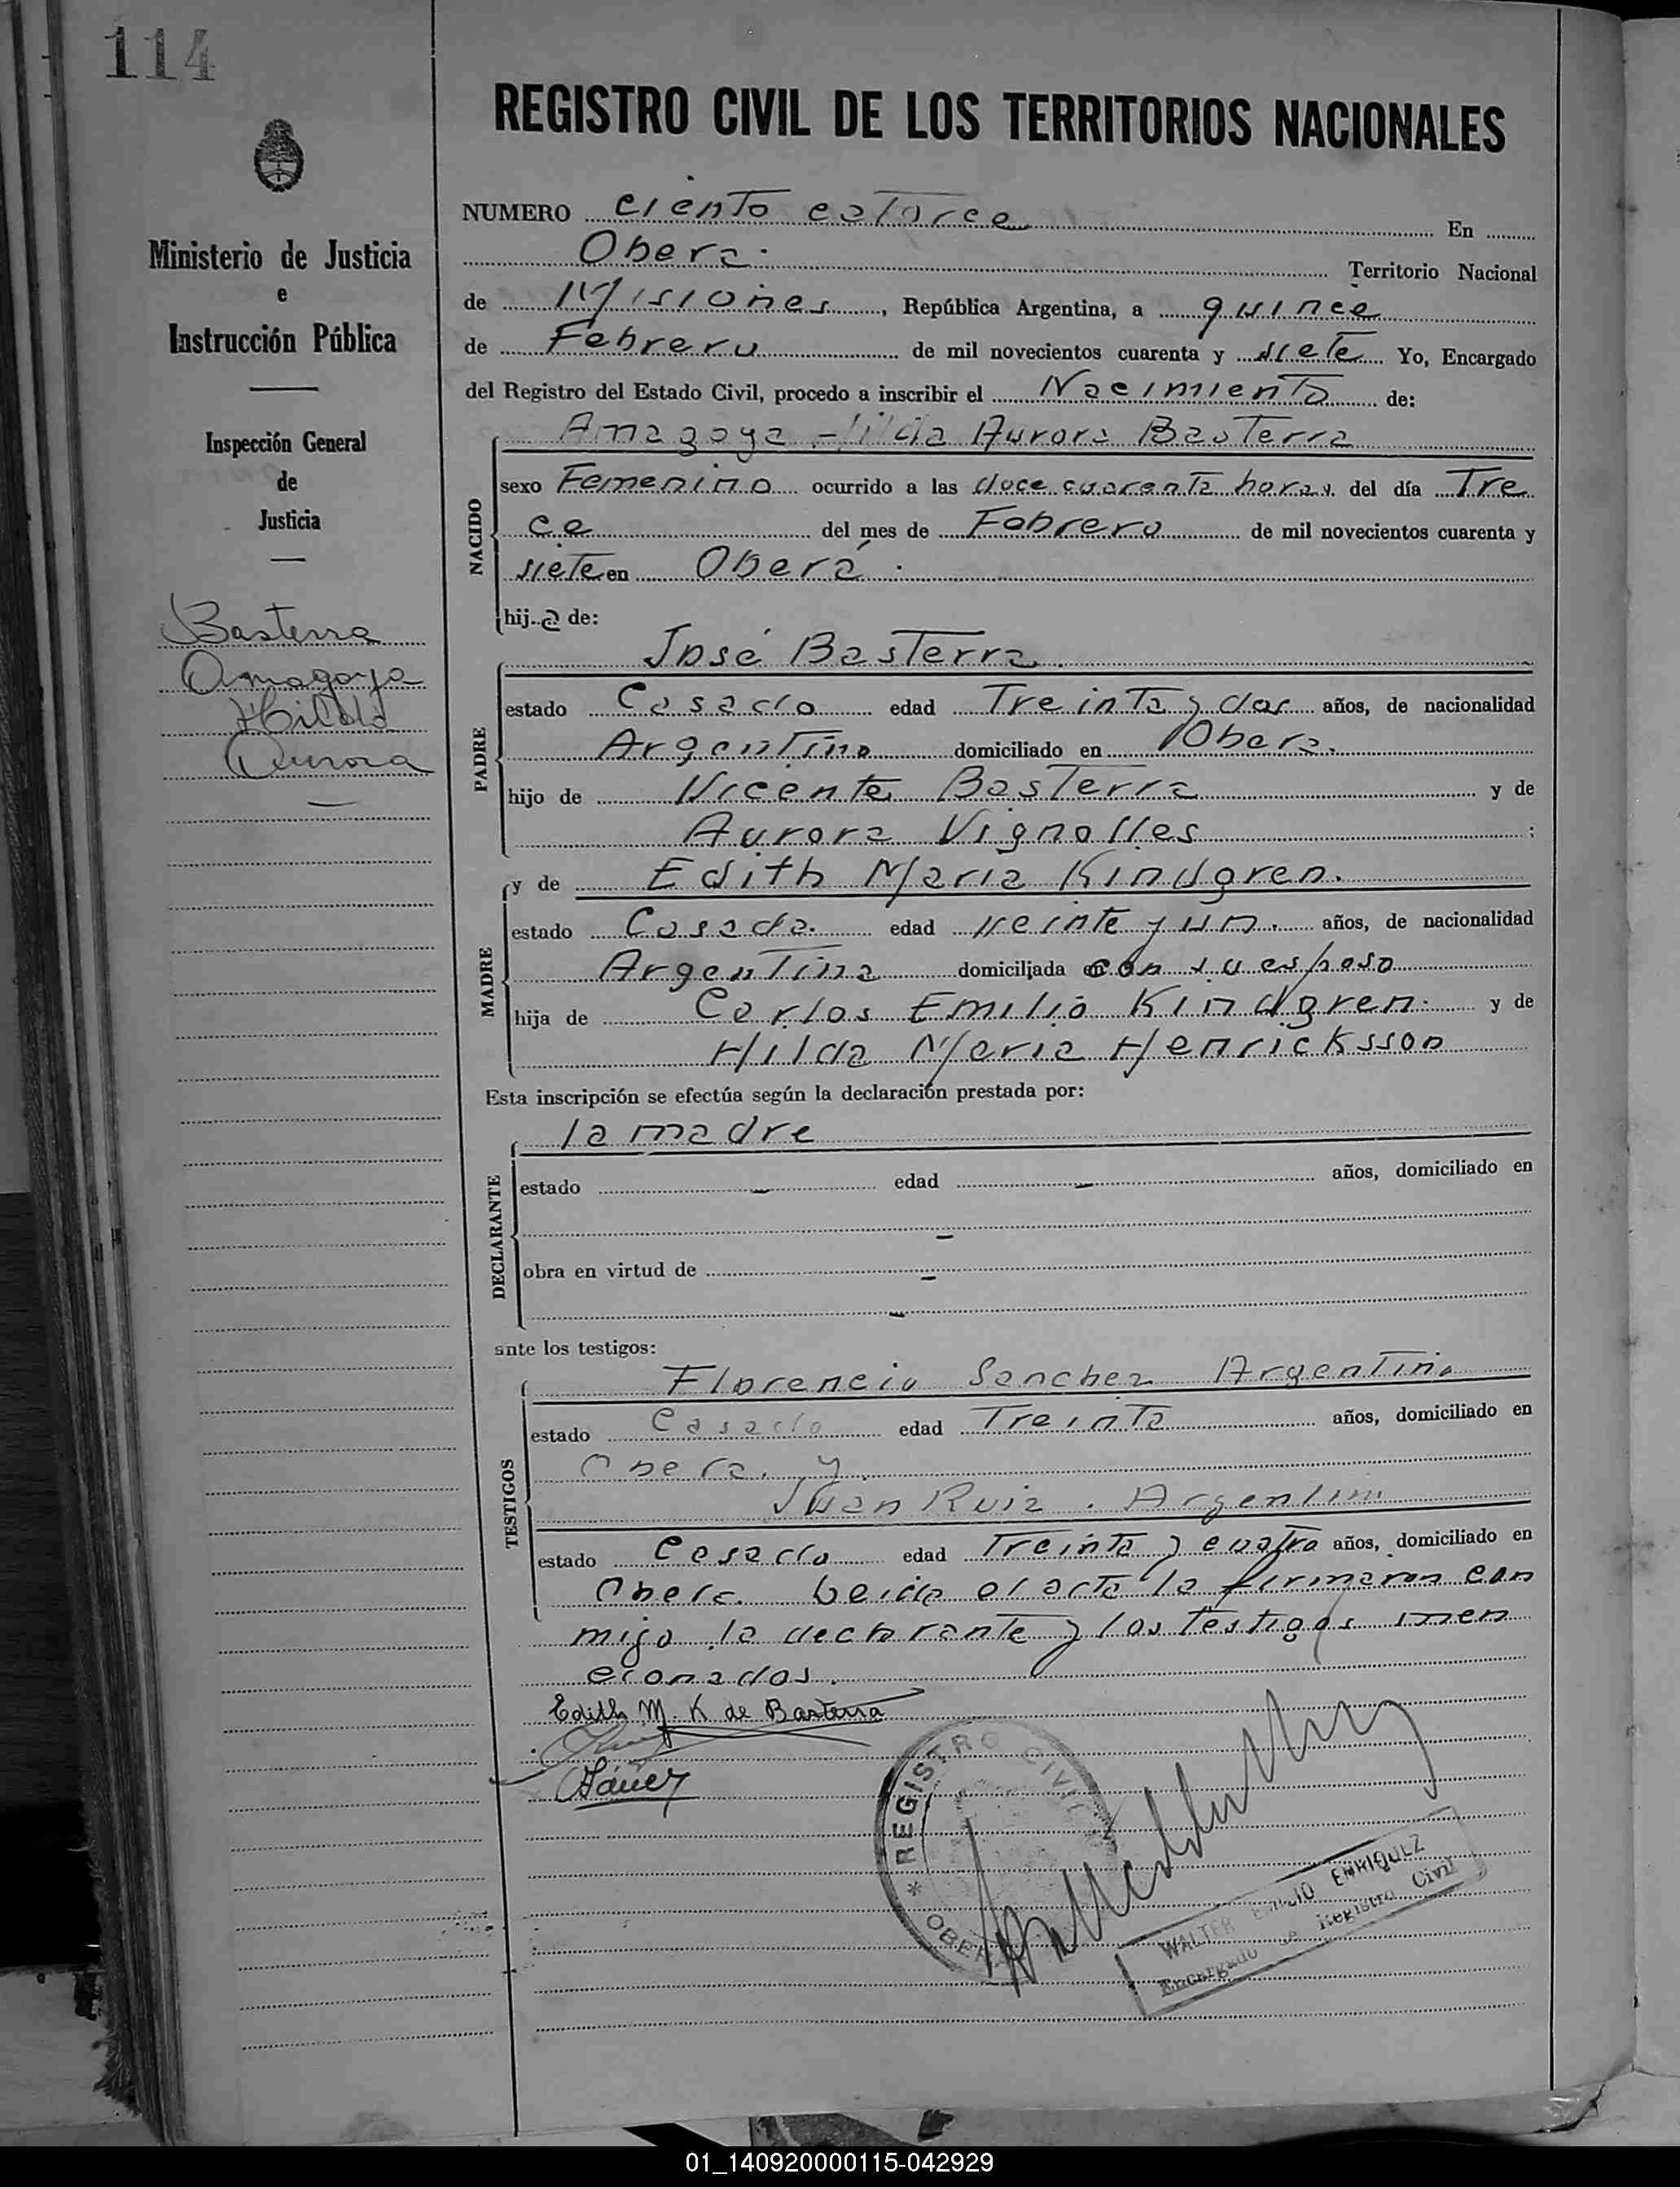 114
REGISTRO CIVIL DE LOS TERRITORIOS NACIONALES
Ministerio de Justicia
e
Instrucción Pública
Inspección General
de
Justicia
Basterra
Amagoya
Hilda
Aurora
NUMERO ciento catorce En
Obera. Territorio Nacional
de Misiones, República Argentina, a quince
de Febrero de mil novecientos cuarenta y siete Yo, Encargado
del Registro del Estado Civil, procedo a inscribir el Nacimiento de:
NACIDO
Amagoya Hilda Aurora Basterra
sexo Femenino ocurrido a las doce cuarenta horas del día Tre
ce del mes de Febrero de mil novecientos cuarenta y
siete en Oberá.
hija de:
PADRE
José Basterra.
estado Casado edad Treinta y dos años, de nacionalidad
Argentino domiciliado en Obera.
hijo de Vicente Basterra y de
Aurora Vignolles ;
MADRE
y de Edith Maria Kindgren.
estado Casada. edad veinte y un. años, de nacionalidad
Argentina domiciliada con su esposo
hija de Carlos Emilio Kindgren. y de
Hilda Maria Henricksson
Esta inscripción se efectúa según la declaración prestada por:
DECLARANTE
la madre
estado - edad - años, domiciliado en
-
obra en virtud de -
-
ante los testigos:
TESTIGOS
Florencio Sanchez Argentino
estado Casado edad Treinta años, domiciliado en
Obera. y
Juan Ruiz. Argentino
estado Casado edad Treinta y cuatro años, domiciliado en
Obera. Leida el acta la firmaron con
migo la declarante y los testigos men
cionados.
Edith M. K de Basterra
REGISTRO CIVIL
* OBERA
WALTER EMILIO ENRIQUEZ
Encargado de Registro Civil
01_140920000115-042929